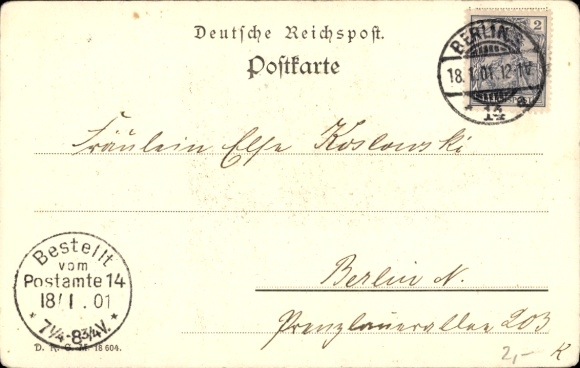 Deutsche Reichspost.
Postkarte
2
BERLIN
18.1.01.12-1V.
* 14 a
Fräulein Else Koslowski
Bestellt
vom
Postamte 14
18/1.01
* 7¼-8¾V. *
Berlin N.
Prenzlauerallee 203
D. R. G. M. 18 604.
2,- K